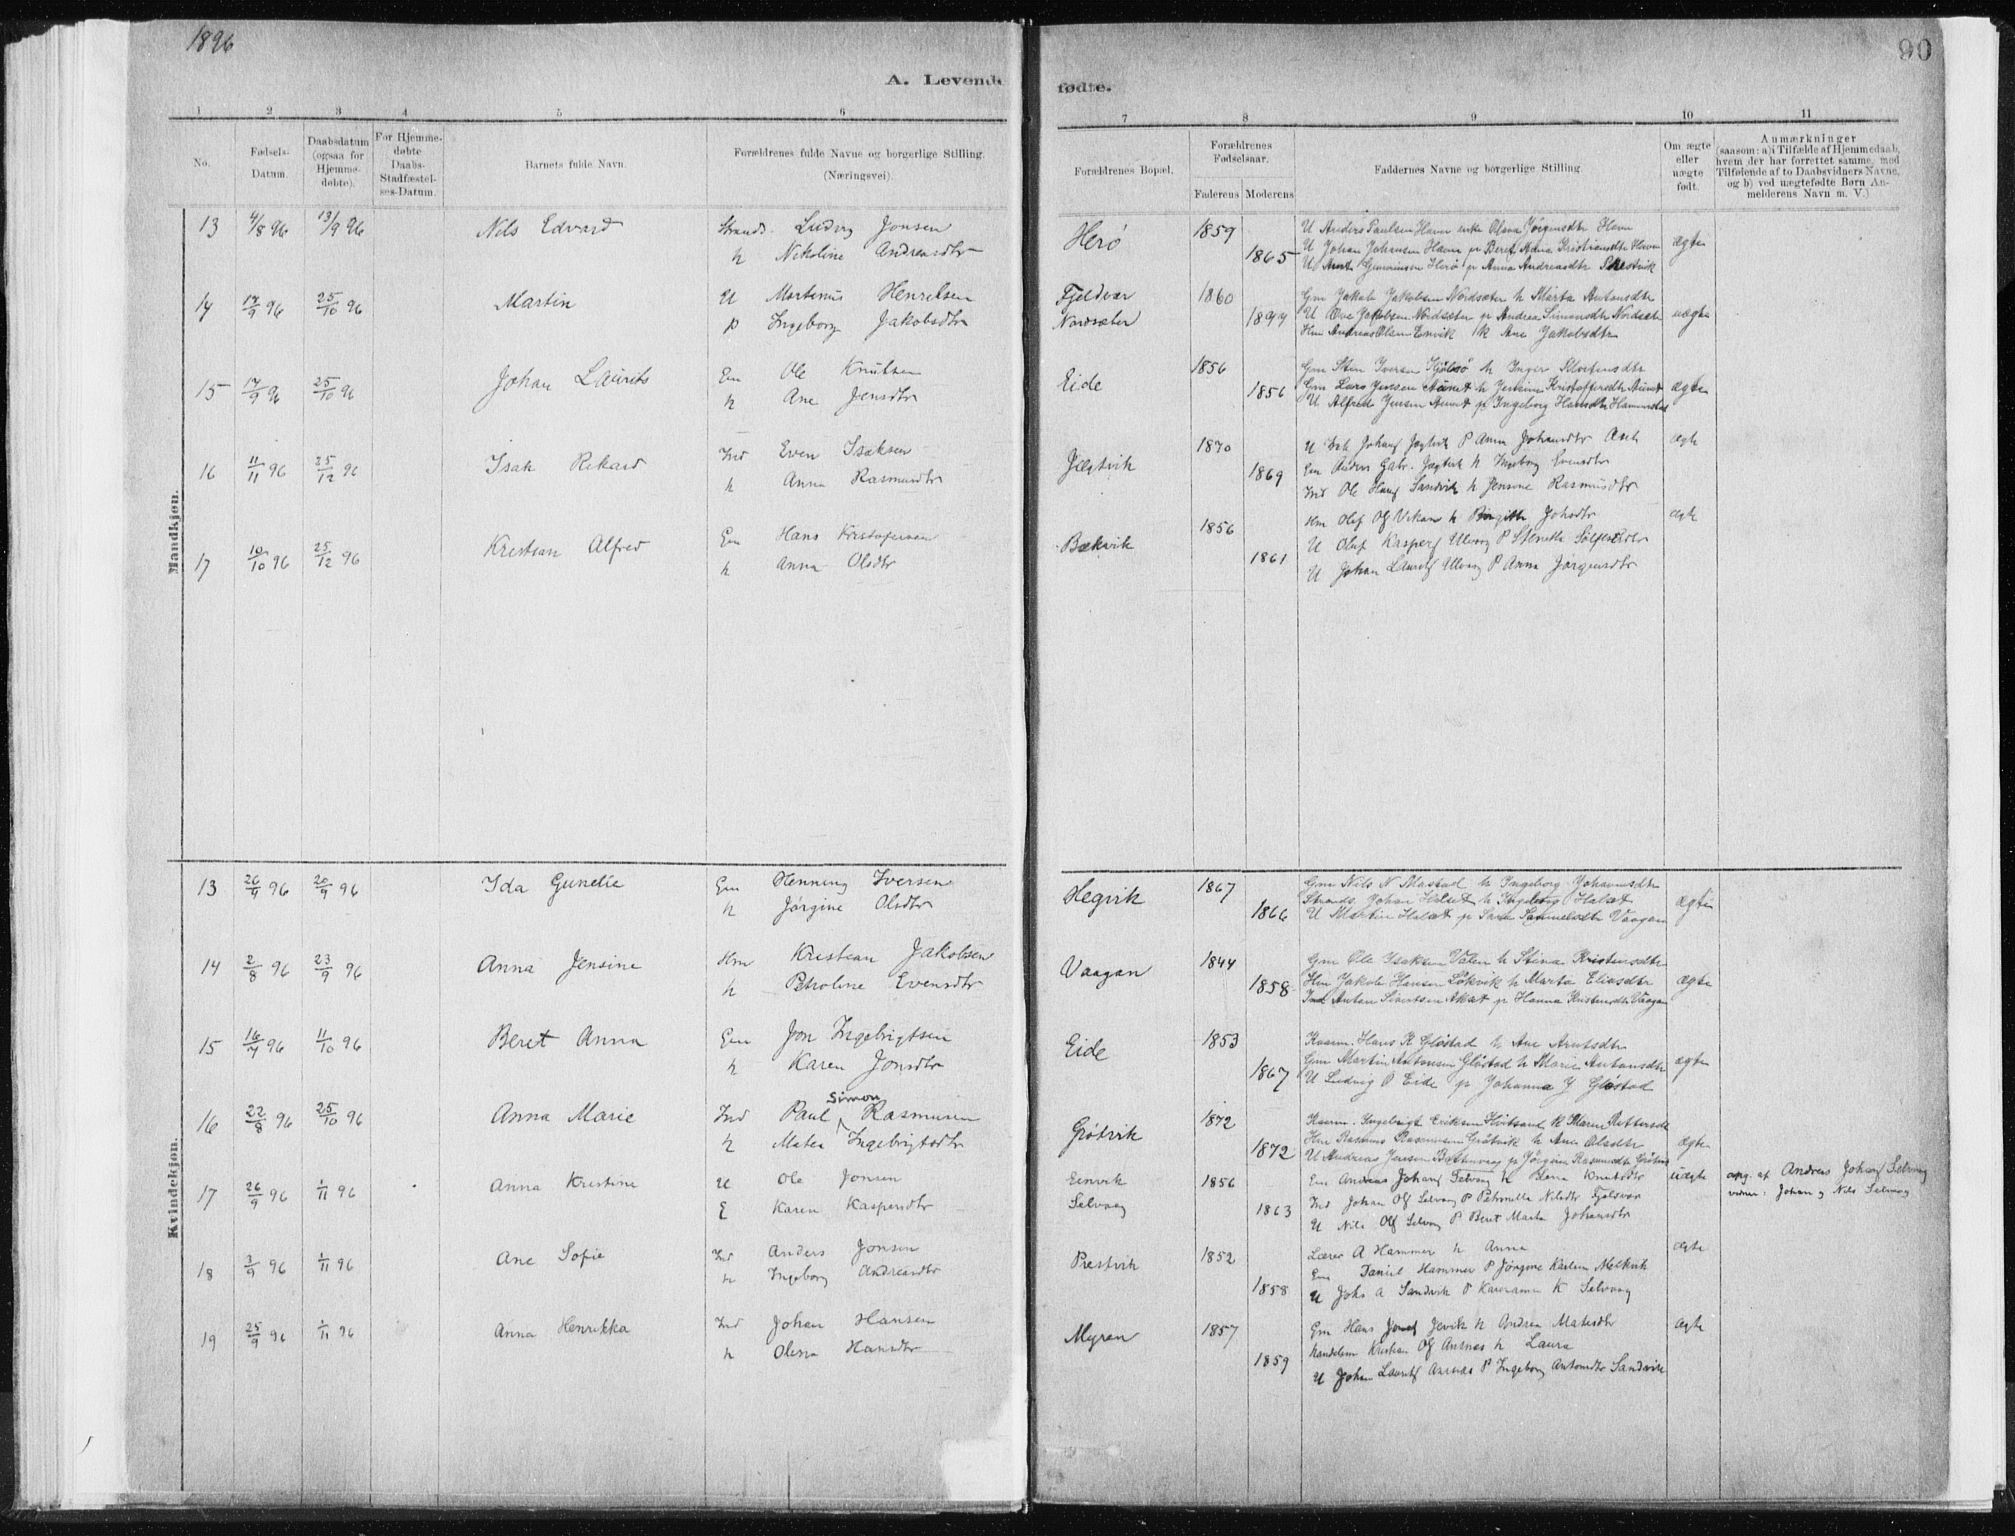 1896
90
A. Levende
fødte.
1 2 3 4 5 6
7 8 9 10 11
No.
Fødsels-Datum.
Daabsdatum (ogsaa for Hjemme-døbte).
For Hjemme-døbte Daabs-Stadfæstel-ses-Datum.
Barnets fulde Navn.
Forældrenes fulde Navne og borgerlige Stilling. (Næringsvei).
Forældrenes Bopæl.
Forældrenes Fødselsaar.
Faderens Moderens
Faddernes Navne og borgerlige Stilling.
Om ægte eller uægte født.
Anmærkninger
(saasom: a) i Tilfælde af Hjemmedaab,
hvem der har forrettet samme, med
Tilføiende af to Daabsvidners Navne,
og b) ved uægtefødte Børn An-
melderens Navn m. V.)
Mandkjøn.
13 4/8 96 13/9 96 Nils Edvard Strands. Ludvig Jonsen Herö 1859 U Anders Paulsen Haven enke Olava Jörgensdtr Haven
h Nikoline Andreasdtr 1865 U Johan Johansen Haven p Beret Anna Kristiansdtr Haven ægte
Herö p Anna Andreasdtr
14 17/9 96 25/10 96 Martin U Martinus Henriksen Fjeldvær 1860 Gm Jakob Jakobsen Nordsæter h Marta Antonsdtr
p Ingeborg Jakobsdtr Nordsæter U Ove Jakobsen Nordsæter p Andrea Simonsdtr Nordsæter uægte
Hm Andreas Olsen Envik h Ane Jakobsdtr
15 17/9 96 25/10 96 Johan Laurits Em Ole Knutsen Eide 1856 Gm Sten Iversen h Inger
h Ane Jensdtr 1856 Gm Lars Jensen Aunet h Jensine Kristoffersdtr Aunet ægte
U Alfred Jensen Aunet p Ingeborg Hansdtr Hammerstad
16 11/11 96 25/12 96 Isak Rikard Ind Even Isaksen Jægtvik 1870 U Johans Jægtvik P Anna Johansdtr ægte
h Anna Rasmusdtr 1869 Em Anders Gabr. Jægtvik h Ingeborg Evensdtr
Ind Ole Hansf Sandvik h Jensine Rasmusdtr
17 10/10 96 25/12 96 Kristian Alfred Em Hans Kristofersen Bækvik 1856 Hm Olaf Olsf Vikan h Birgitte Johsdtr ægte
h Anna Olsdtr 1861 U Oluf Kaspersf Ulvaag P
U Johan Lauritsf Ulvaag P Anna Jörgensdtr
Kvindekjøn.
13 26/4 96 20/9 96 Ida Gunelie Gm Henning Iversen Hegvik 1867 Gm Nils N Mastad h Ingeborg Johannesdtr
h Jörgine Olsdtr 1866 Strands. Johan Halset h Ingeborg Halset ægte
U Martin Halset p Sara Samuelsdtr Vaagan
14 2/8 96 23/9 96 Anna Jensine Hm Kristian Jakobsen Vaagan 1844 Gm Ole Isaksen Valen h Stina Kristensdtr
h Petroline Evensdtr 1858 Hm Jakob Hansen Lökvik h Marta Eliasdtr ægte
Ind Anton Sivertsen p Hanna Kristensdtr Vaagan
15 16/7 96 11/10 96 Beret Anna Gm Jon Ingebrigtsen Eide 1853 Kaarm. Hans K Glöstad h Ane Arntsdtr
h Karen Jonsdtr 1867 Gm Martin Antonsen Glöstad h Marie Antonsdtr ægte
U Ludvig P Eide p Johanna J Glöstad
16 22/8 96 25/10 96 Anna Marie Ind Paul Simon Rasmusen Grötvik 1872 Kaarm. Ingebrigt Eriksen Hvitsand h Maren Pettersdtr
h Matea Ingebrigtsdtr 1872 Hm Rasmus Rasmusen Grötvik h Ane Olsdtr ægte
U Andreas Jensen p Jörgine Rasmusdtr Grötvik
17 26/9 96 1/11 96 Anna Kristine U Ole Jonsen Einvik 1856 Em Andreas Johansf Selvaag h Knutsdtr uægte opg. af Andreas Johansf Selvaag
E Karen Kaspersdtr Selvaag 1863 Ind Johan Olsf Selvaag P Petronille Nilsdtr Fjelsvær vidner: Johan og Nils Selvaag
U Nils Olsf Selvaag P Beret Marta Johansdtr
18 3/9 96 1/11 96 Ane Sofie Ind Anders Jonsen Prestvik 1852 Lærer A Hammer h Anna ægte
h Ingeborg Andreasdtr 1858 Em Daniel Hammer P Jörgine Karlsen Melkvik
U Johs A Sandvik P K Selvaag
19 25/9 96 1/11 96 Anna Henrikka Ind Johan Hansen Myran 1857 Gm Hans Jonsf Jevik h Andrea Matisdtr ægte
h Olina Hansdtr 1859 Handelsm Kristian Olsf Ansnæs h Laura
U Johan Lauritsf Ansnæs P Ingeborg Antonsdtr Sandvik